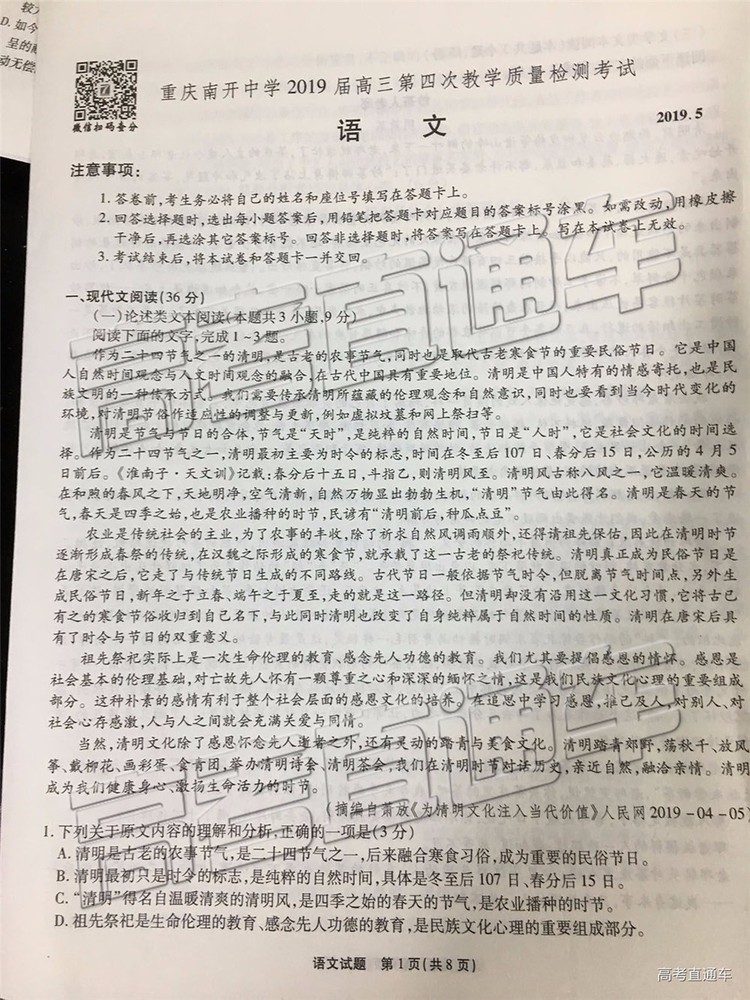 较大
D. 如今
呈的献
动无偿
微信扫码查分
重庆南开中学2019届高三第四次教学质量检测考试
语 文
2019.5
注意事项：
1. 答卷前,考生务必将自己的姓名和座位号填写在答题卡上。
2. 回答选择题时,选出每小题答案后,用铅笔把答题卡对应题目的答案标号涂黑。如需改动,用橡皮擦
干净后,再选涂其它答案标号。回答非选择题时,将答案写在答题卡上。写在本试卷上无效。
3. 考试结束后,将本试卷和答题卡一并交回。
一、现代文阅读(36分)
(一)论述类文本阅读(本题共3小题,9分)
阅读下面的文字,完成1~3题。
作为二十四节气之一的清明,是古老的农事节气,同时也是取代古老寒食节的重要民俗节日。它是中国
人自然时间观念与人文时间观念的融合,在古代中国具有重要地位。清明是中国人特有的情感寄托,也是民
族文明的一种传承方式。我们需要传承清明所蕴藏的伦理观念和自然意识,同时也要看到当今时代变化的
环境,对清明节俗作适应性的调整与更新,例如虚拟坟墓和网上祭扫等。
清明是节气与节日的合体,节气是“天时”,是纯粹的自然时间,节日是“人时”,它是社会文化的时间选
择。作为二十四节气之一,清明最初主要为时令的标志,时间在冬至后107日、春分后15日,公历的4月5
日前后。《淮南子·天文训》记载:春分后十五日,斗指乙,则清明风至。清明风古称八风之一,它温暖清爽。
在和煦的春风之下,天地明净,空气清新,自然万物显出勃勃生机,“清明”节气由此得名。清明是春天的节
气,春天是四季之始,也是农业播种的时节,民谚有“清明前后,种瓜点豆”。
农业是传统社会的主业,为了农事的丰收,除了祈求自然风调雨顺外,还得请祖先保佑,因此在清明时节
逐渐形成春祭的传统,在汉魏之际形成的寒食节,就承载了这一古老的祭祀传统。清明真正成为民俗节日是
在唐宋之后,它走了与传统节日生成的不同路线。古代节日一般依据节气时令,但脱离节气时间点,另外生
成民俗节日,新年之于立春、端午之于夏至,走的就是这一路径。但清明却没有沿用这一文化习惯,它将古已
有之的寒食节俗收归到自己名下,与此同时清明也改变了自身纯粹属于自然时间的性质。清明在唐宋后具
有了时令与节日的双重意义。
祖先祭祀实际上是一次生命伦理的教育、感念先人功德的教育。我们尤其要提倡感恩的情怀。感恩是
社会基本的伦理基础,对亡故先人怀有一颗尊重之心和深深的缅怀之情,这是我们民族文化心理的重要组成
部分。这种朴素的感情有利于整个社会层面的感恩文化的培养。在追思中学习感恩,推己及人,对别人、对
社会心存感激,人与人之间就会充满关爱与同情。
当然,清明文化除了感恩怀念先人逝者之外,还有灵动的踏青与美食文化。清明踏青郊野,荡秋千、放风
筝、戴柳花、画彩蛋、食青团,举办清明诗会、清明茶会,我们在清明时节对话历史,亲近自然,融洽亲情。清明
成为我们健康身心、激扬生命活力的时节。
(摘编自萧放《为清明文化注入当代价值》人民网2019-04-05)
1. 下列关于原文内容的理解和分析,正确的一项是(3分)
A. 清明是古老的农事节气,是二十四节气之一,后来融合寒食习俗,成为重要的民俗节日。
B. 清明最初只是时令的标志,是纯粹的自然时间,具体是冬至后107日、春分后15日。
C. “清明”得名自温暖清爽的清明风,是四季之始的春天的节气,是农业播种的时节。
D. 祖先祭祀是生命伦理的教育、感念先人功德的教育,是民族文化心理的重要组成部分。
语文试题 第1页(共8页)
高考直通车
高考直通车
高考直通车